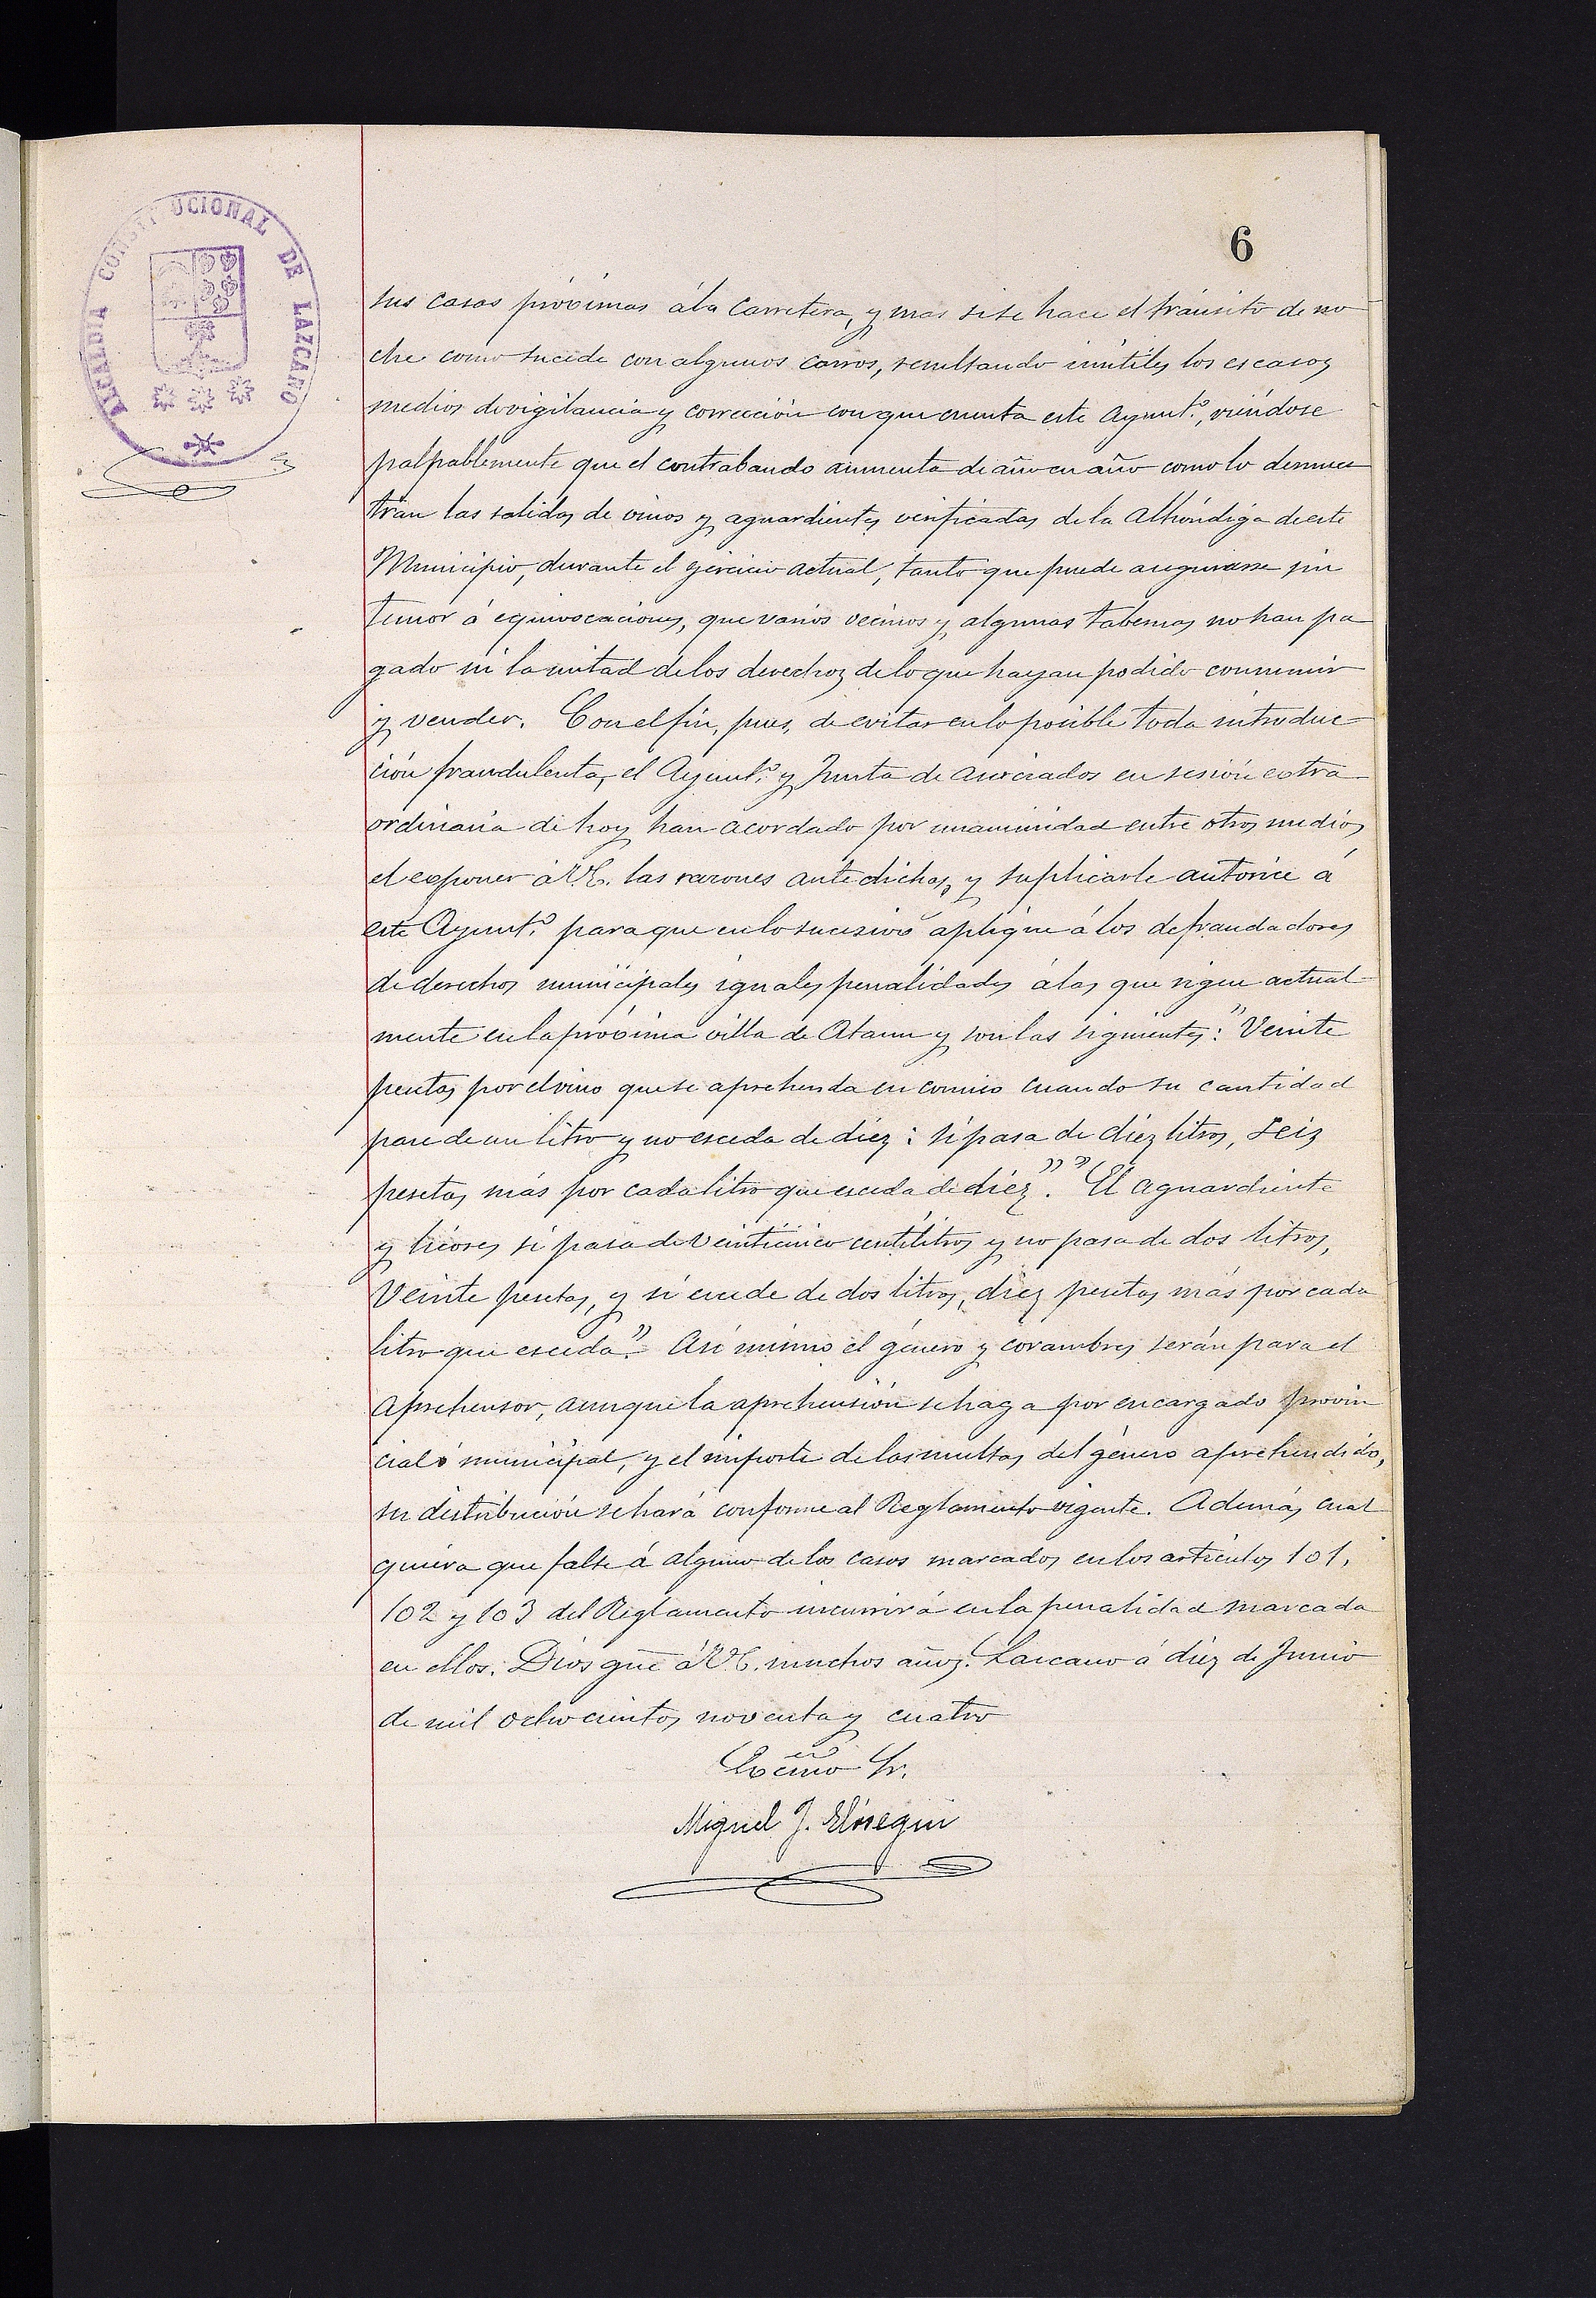 ALCALDIA CONSTITUCIONAL DE LAZCANO
6
sus casas próximas á la carretera, y mas si se hace el tránsito de no
che como sucede con algunos carros, resultando inútiles los escasos
medios de vigilancia y corrección con que cuenta este Ayunt.º, viéndose
palpablemente que el contrabando aumenta de año en año como lo demues
tran las salidas de vinos y aguardientes verificadas de la Alhóndiga de este
Municipio, durante el ejercicio actual, tanto que puede asegurarse sin
temor á equivocaciones, que varios vecinos y algunas tabernas no han pa
gado ni la mitad de los derechos de lo que hayan podido consumir
y vender. Con el fin, pues, de evitar en lo posible toda introduc-
ción fraudulenta, el Ayunt.º y Junta de asociados en sesión extra
ordinaria de hoy han acordado por unanimidad entre otros medios,
el exponer á V.E. las razones antedichas, y suplicarle autorice á
este Ayunt.º para que en lo sucesivo aplique á los defraudadores
de derechos municipales iguales penalidades á las que rigen actual-
mente en la próxima villa de Ataun y son las siguientes: "Veinte
pesetas por el vino que se aprehenda en comiso cuando su cantidad
pase de un litro y no esceda de diez: si pasa de diez litros, seis
pesetas más por cada litro que esceda de diez". "El aguardiente
y licores si pasa de veinticinco centilitros y no pasa de dos litros,
Veinte pesetas, y si excede de dos litros, diez pesetas más por cada
litro que esceda". Asi mismo el género y corambres serán para el
aprehensor, aunque la aprehensión se haga por encargado provin
cial ó municipal, y el importe de las multas del género aprehendido,
su distribución se hará conforme al Reglamento vigente. Además, cual
quiera que falte á alguno de los casos marcados en los artículos 101,
102 y 103 del Reglamento incurrirá en la penalidad marcada
en ellos. Dios gue á V.E. muchos años. Lazcano á diez de Junio
de mil ochocientos noventa y cuatro
Excmo Sr.
Miguel J. Elósegui